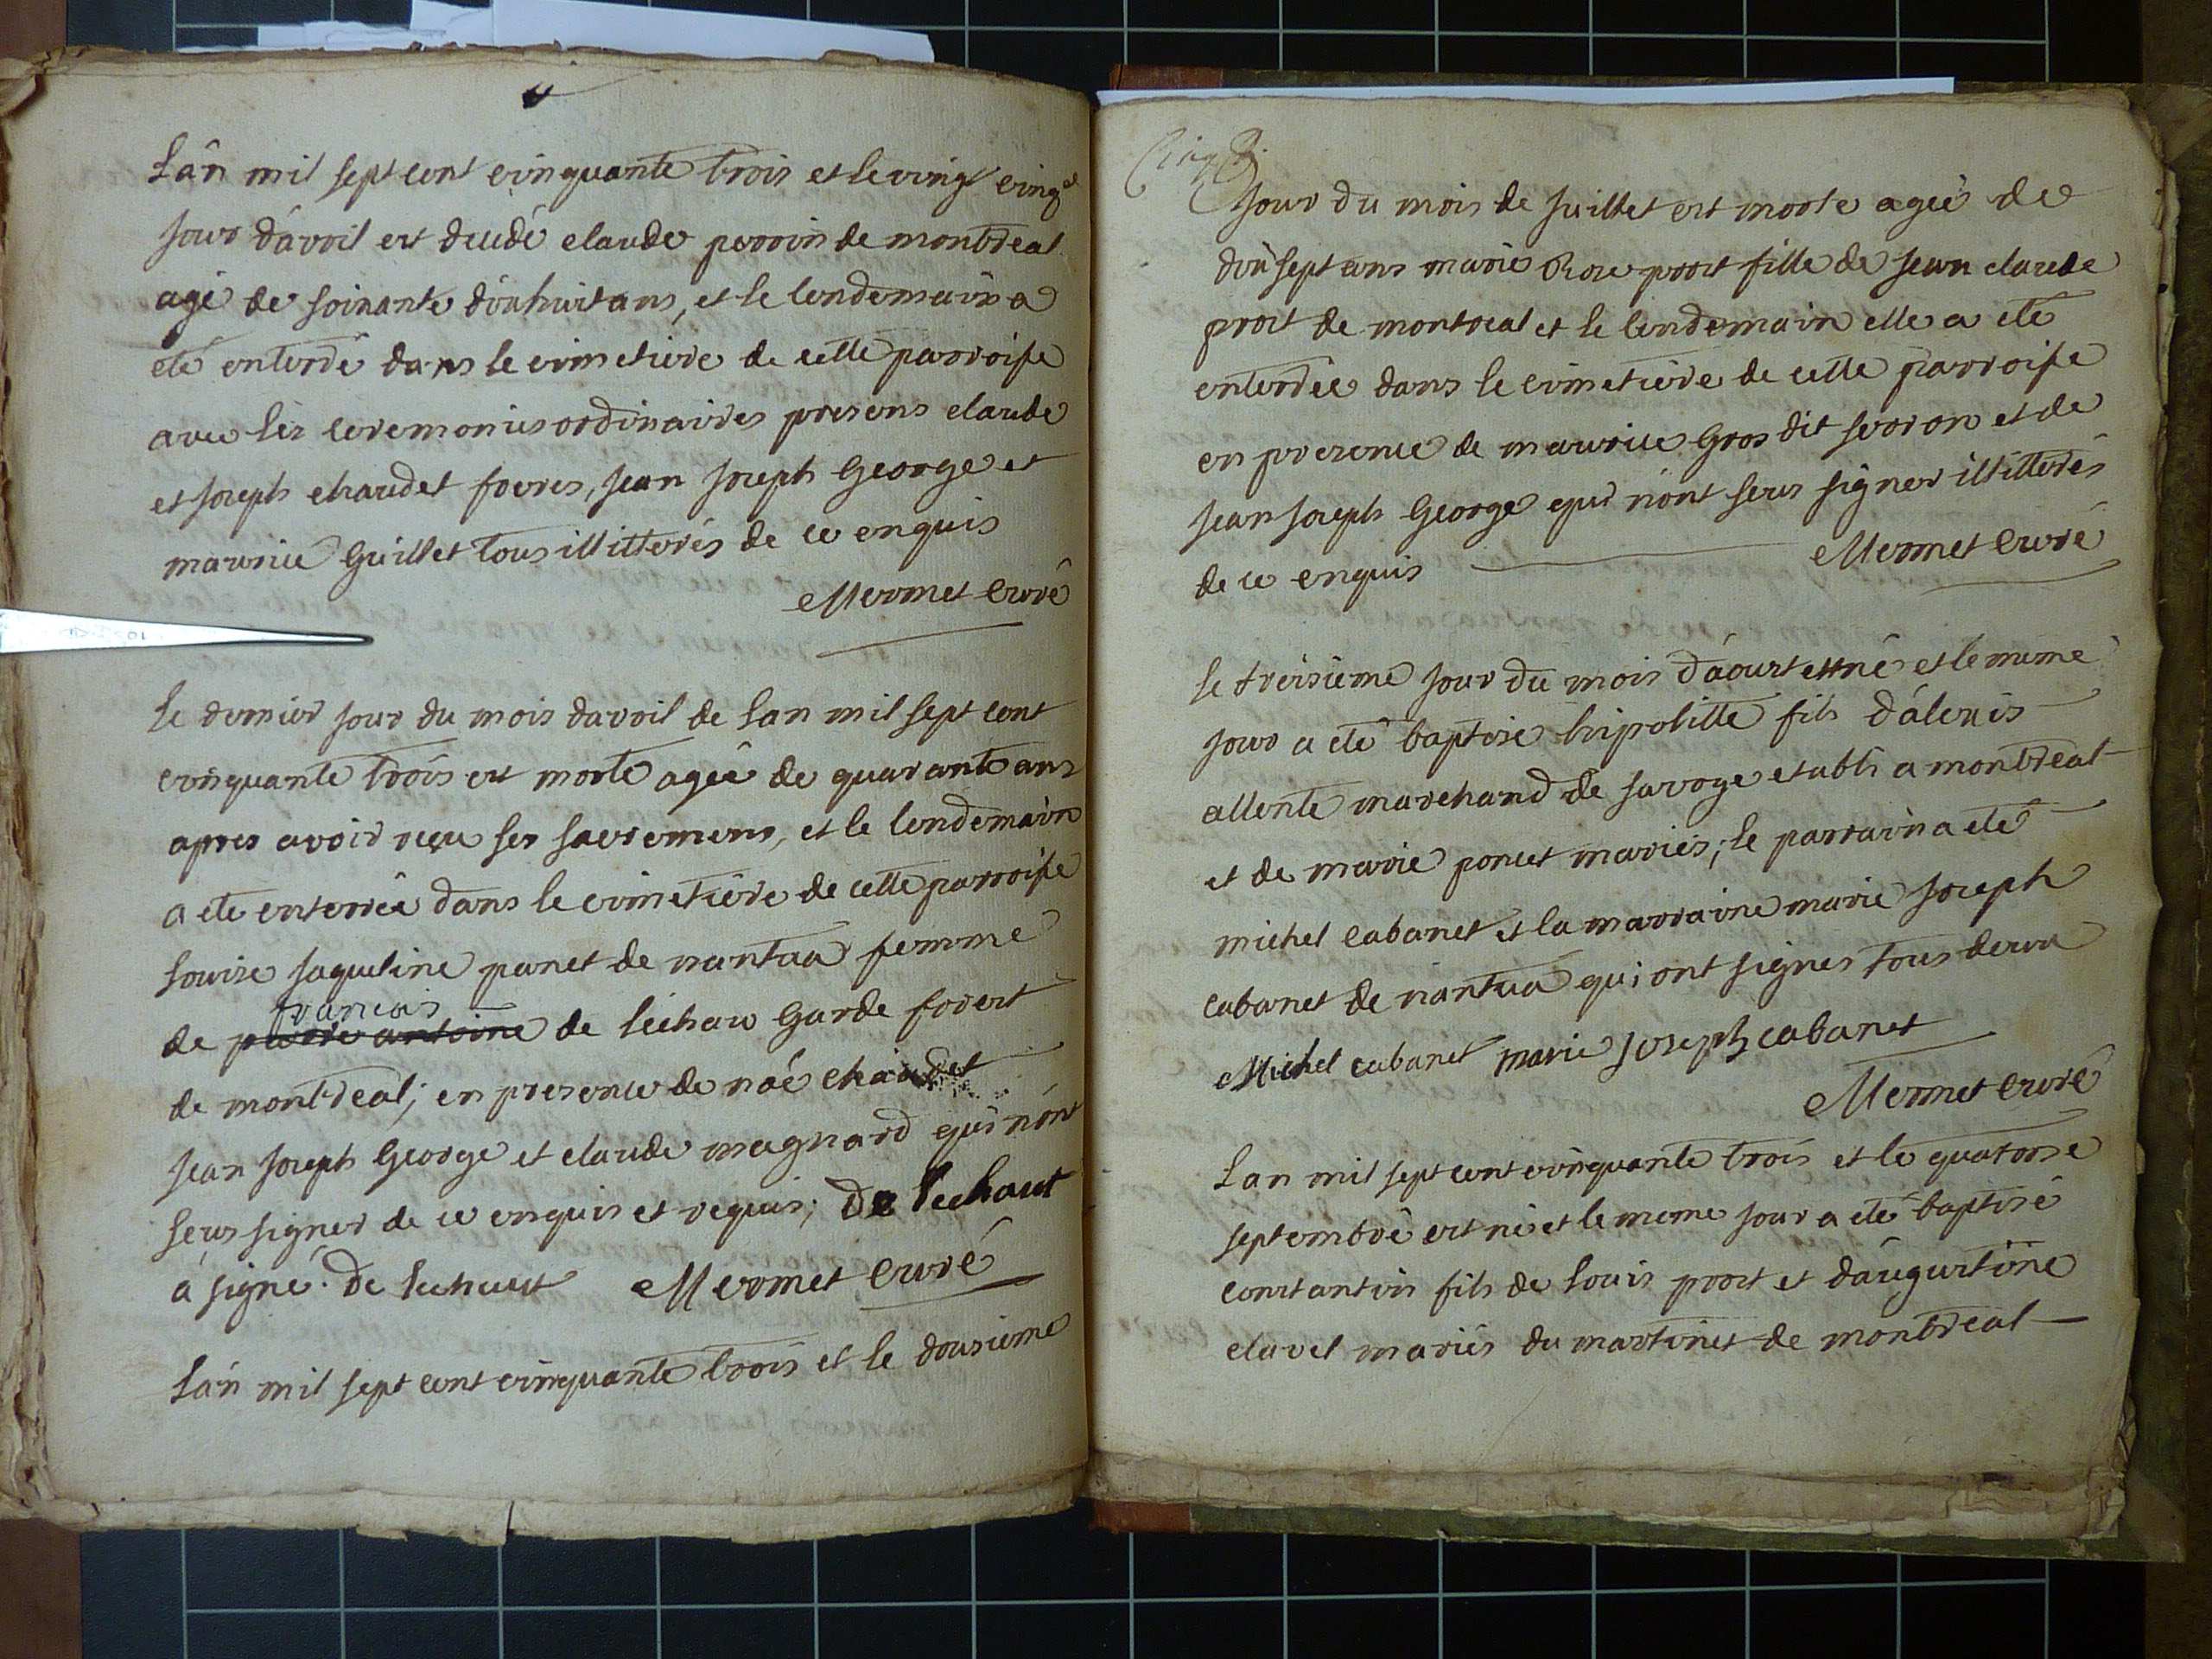 Lân mil sept cent cinquante trois et le vingt cinq
jour d'avril est decedé claude perrin de montreal
agé de soixante dixhuit ans, et le lendemain a
eté enterré dans le cimetiere de cette parroisse
avec les ceremonies ordinaires presens claude
et joseph chaudet freres, jean joseph George et
maurice Guillet tous illitterés de ce enquis
Mermet Curé
le dernier jour du mois davril de lan mil sept cent
cinquante trois est morte agée de quarante ans
apres avoir reçu ses sacremens, et le lendemain
a ete enterrée dans le cimetiere de cette parroisse
Louise Jaqueline panet de nantua femme
francois
de pierre antoine de lechaux Garde forest
de montreal; en presence de noé chaudet
jean joseph George et claude magnard qui n'ont
seus signer de ce enquis et requis; De lechaut
a signé. De lechaut Mermet Curé
Lán mil sept cent cinquante trois et le dousieme
Cinq
jour du mois de juillet est morte agée de
dixsept ans marie Rose prost fille de jean claude
prost de montreal et le lendemain elle a eté
enterrée dans le cimetiere de cette parroisse
en presence de maurice Gros dit seoron et de
jean joseph George qui n'ont seus signer illitterés
de ce enquis Mermet Curé
le treisieme jour du mois d'aoust est né et le mème
jour a eté baptisé hipolitte fils d'alexis
allente marchand de savoye etabli a montreal
et de marie poncet mariés; le parrain a eté
michel cabanet et la marraine marie joseph
cabanet de nantua qui ont signes tous deux
Michel cabanet marie joseph cabanet
Mermet Curé
Lan mil sept cent cinquante trois et le quatorse
septembre est né et le meme jour a eté baptisé
constantin fils de louis prost et d'augustine
clavel mariés du martinet de montreal